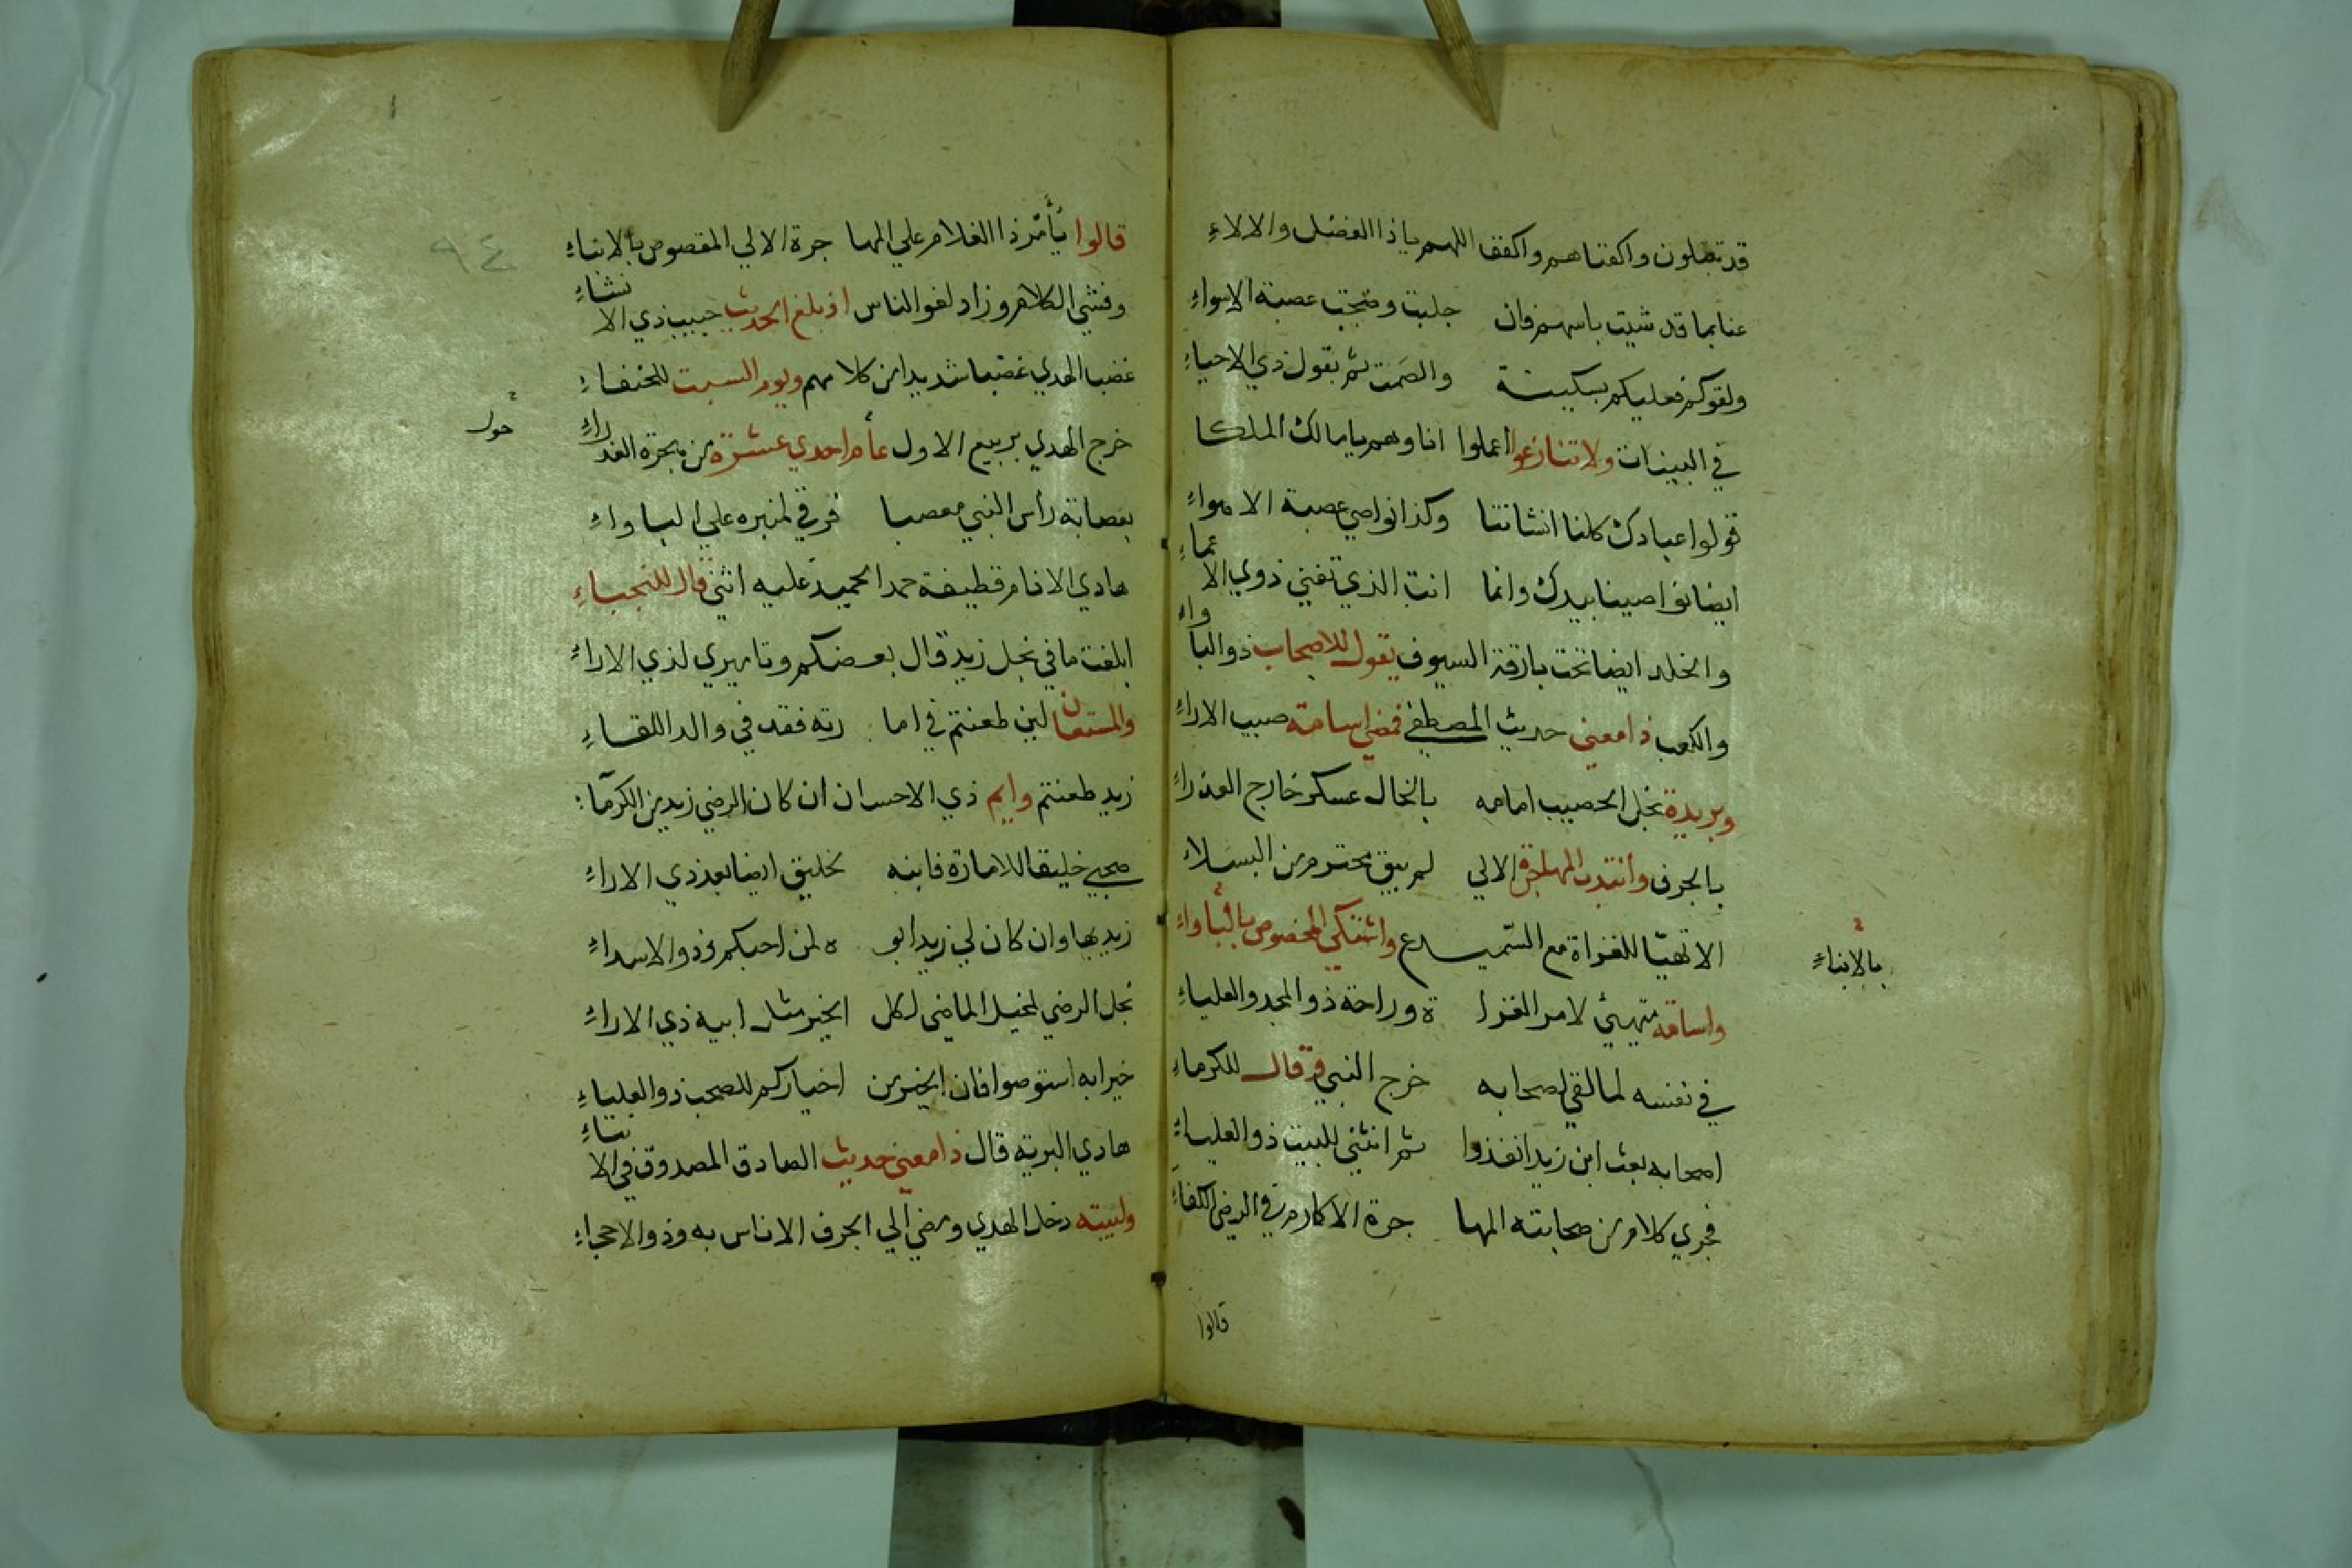 قد تهلون واكفناهم واكفف اللهم ياذا الفضل والالاءِ
عنا بما قد شيت باسهم فان جلبت وضجت عصبة الاسواءِ
ولقوكم فعليكم بسكينة والصمت ثم بقول ذي الاحياءِ
في البينات ولا تنازعوا اعملوا انا وهم يا مالك الملكا
قولوا عبادك كلنا انشاتنا وكذا نواصي عصبة الاهواءِ
ايضا نواصينا بيدك وانما انت الذي تفني ذوي الاعماءِ
والخلد ايضا تحت بارقة السيوف يقول للاصحاب ذو الباواء
والكعب ذا معني حديث المصطفي فمضي اسامة صبيب الاراءِ
وبريدة نجل الحصيب امامه بالخال عسكر خارج العذراءِ
بالجرف وانتدب المهاجرة الالي لم يبق محترم من البسلاء
الا تهيّا للغزاة مع السّميدع واشتكي المخصوص بالباواءِ
بالانباءِ
واسامة متهيئ لامر الغزا ة وراحة ذو المجد والعلياءِ
في نفسه لما لقي اصحابه خرج النبي وقال للكرماءِ
اصحابه بعث ابن زيد انفذوا ثم انثني للبيت ذو العلياءِ
فجري كلام من صحابته المها جرة الاكارم في الرضي الكفاءِ
قالوا
٩٤
قالوا يأمّر ذا الغلام علي المها جرة الالي المقصوص بالانباءِ
وفشي الكلام وزاد لغو الناس اذ بلغ الحديث حبيب ذي الانشاءِ
غضب الهدي غضبا شديدا من كلامهم ويوم السبت للحنفاءِ
خرج الهدي بربيع الاول عام احدي عشرة من هجرة العذراءِ
حول
بعصابة رأس النبي معصبا فرقي لمنبره علي الباواءِ
هادي الانام قطيفة حمد الحميد عليه اثني قال للنجباءِ
ابلغت ما في نجل زيد قال بعضكم وتاميري لذي الاراءِ
والمستعان لين طعنتم في اما رته فقد في والد اللقاءِ
زيد طعنتم وايم ذي الاحسان ان كان الرضي زيد من الكرمآ
صحبي خليقا للامارة فابنه لخليق ايضا بعد ذي الاراءِ
زيد بها وان كان لي زيد ابو ه لمن احبكم وذو الاسداءِ
نجل الرضي لمخيل الماضي لكل الخير مثل ابيه ذي الاراءِ
خيرا به استوصوا فان الخير من اخياركم للصحب ذو العلياءِ
هادي البرية قال ذا معني حديث الصادق المصدوق في الانباءِ
ولبيته دخل الهدي ومضي الي الجرف الاناس به وذو الاحجاءِ